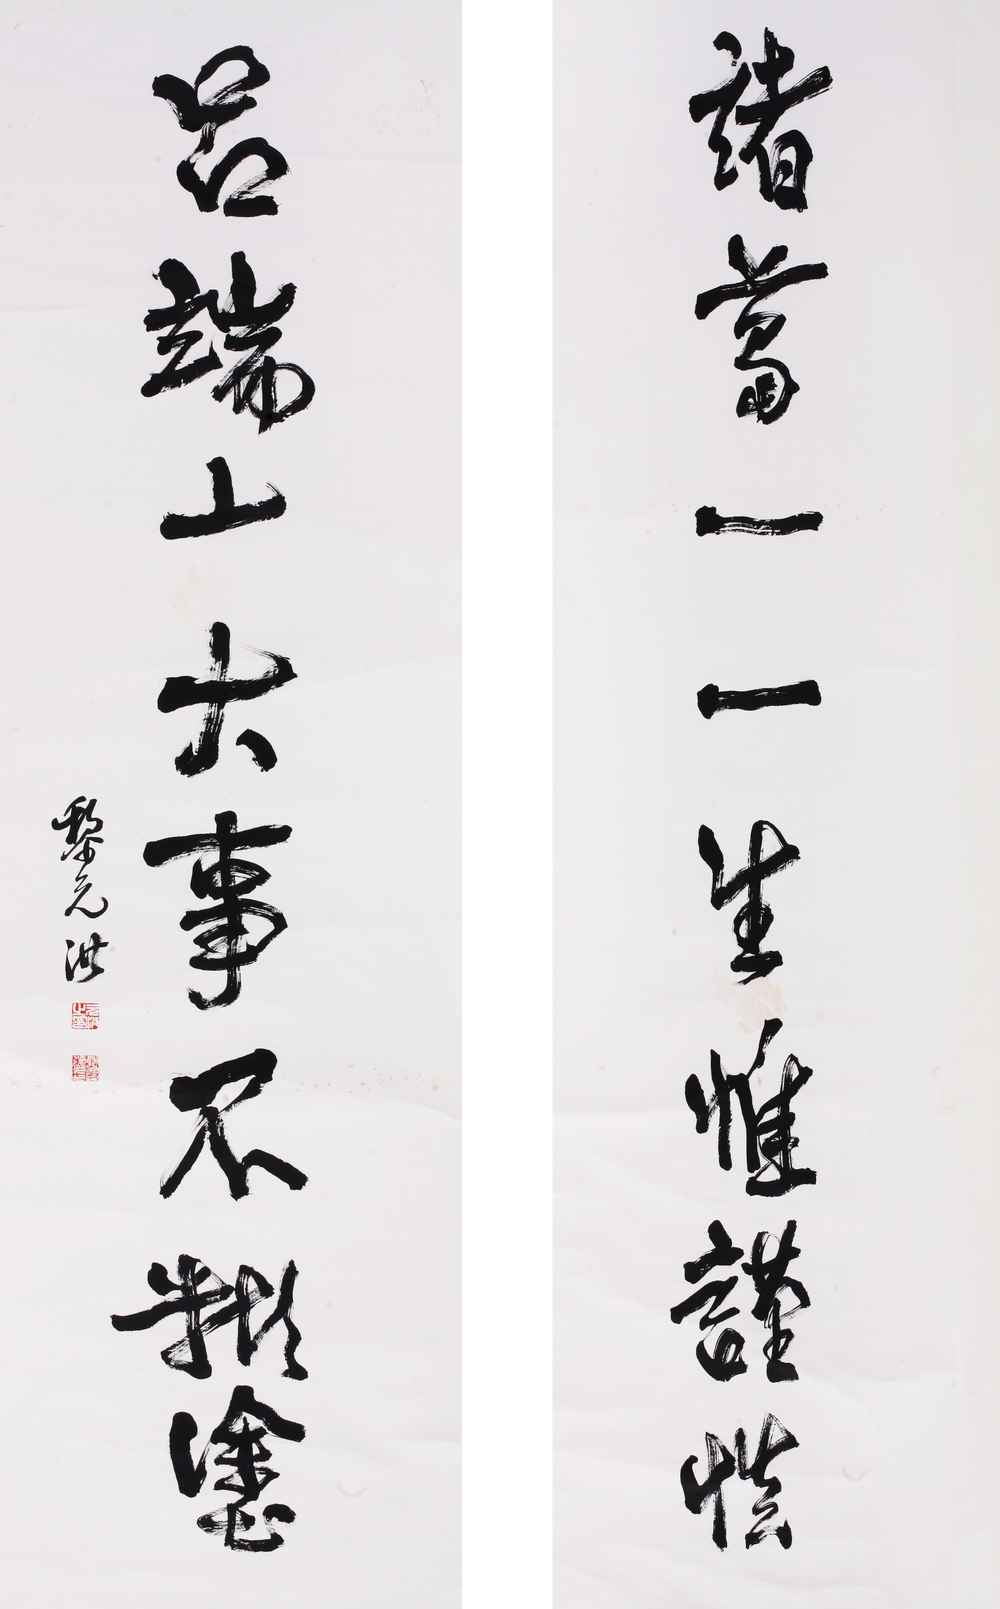 諸葛一一生惟謹慎
呂端大事不糊塗
黎元洪